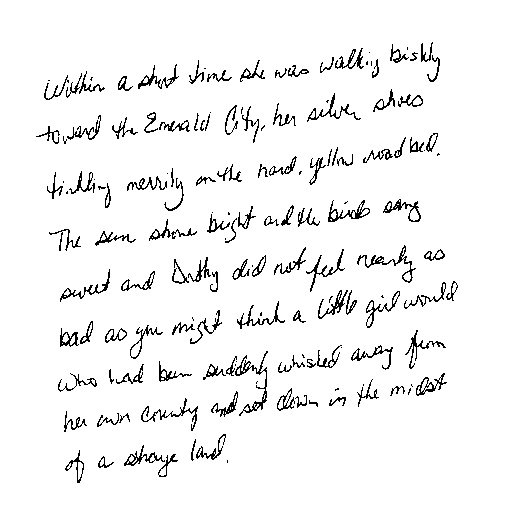 Within a short time she was walking briskly
toward the Emerald City, her silver shoes
tinkling merrily on the hard, yellow road bed.
The sun shone bright and the birds sang
sweet and Dorothy did not feel nearly as
bad as you might think a little girl would
who had been suddenly whisked away from
her own country and set down in the midst
of a strange land.